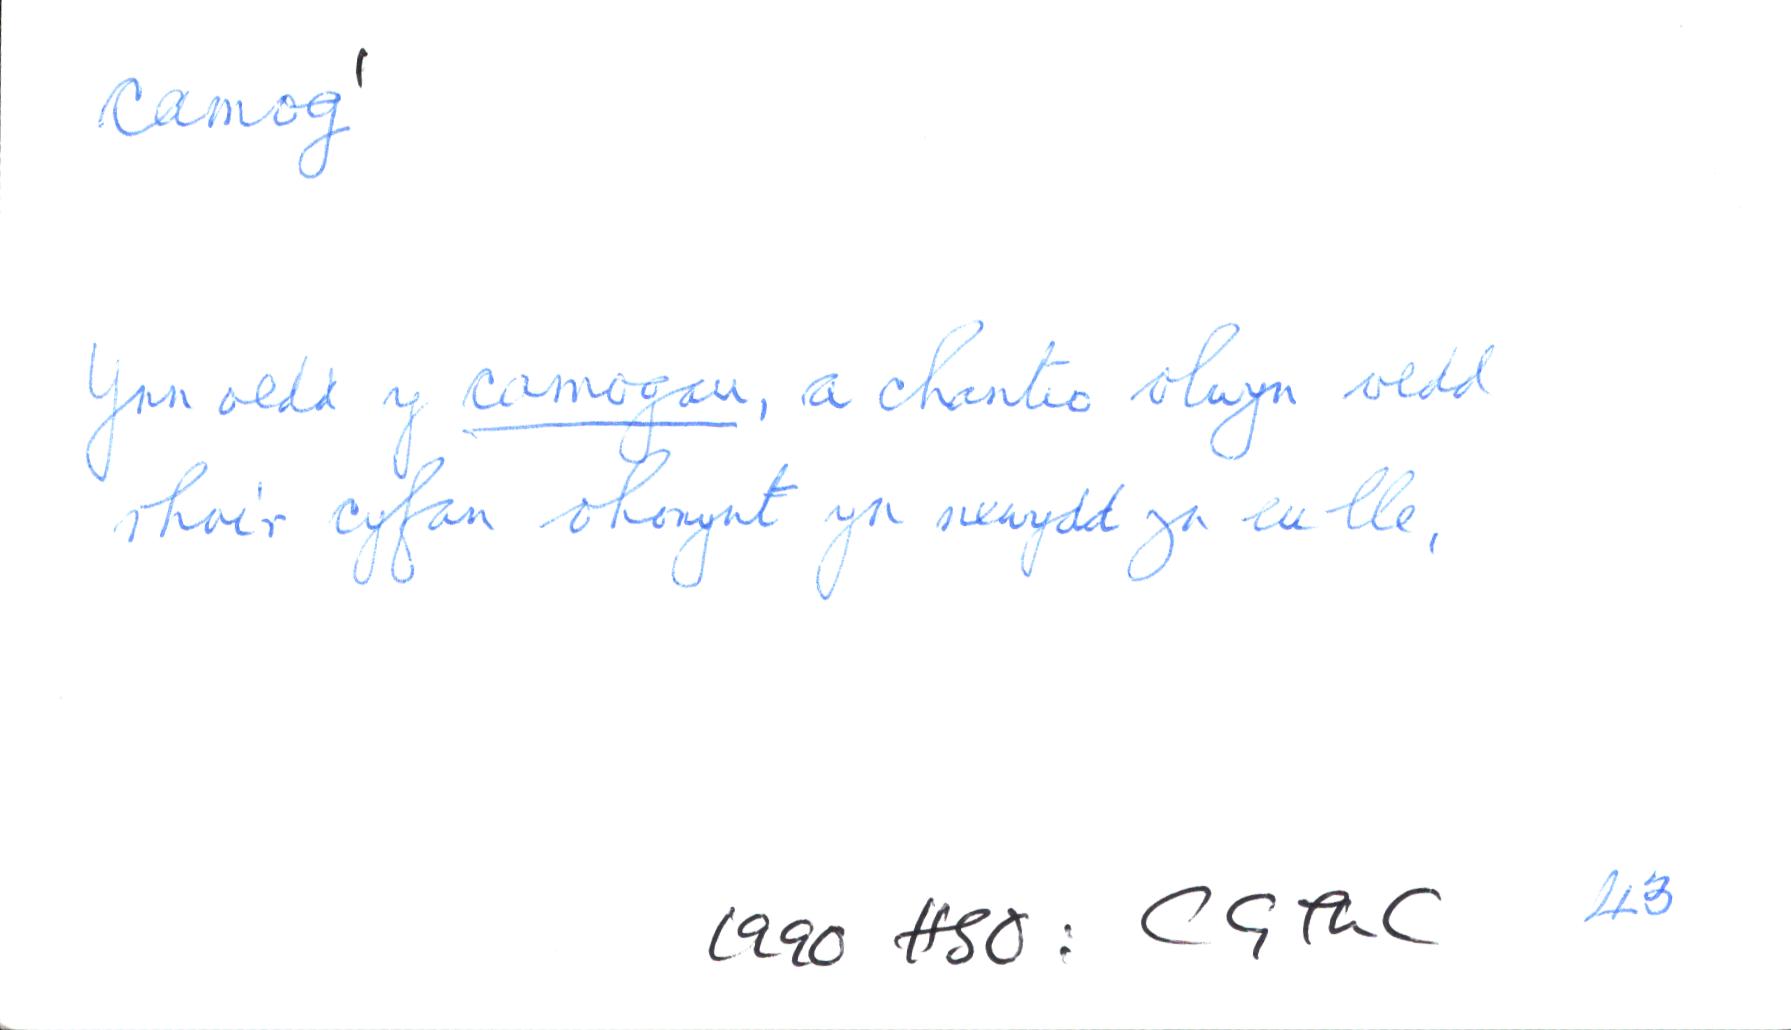 camog¹
Ynn oedd y camogau, a chantio olwyn oedd
rhoi'r cyfan ohonynt yn newydd yn eu lle.
1990 HSO: CGThC 43